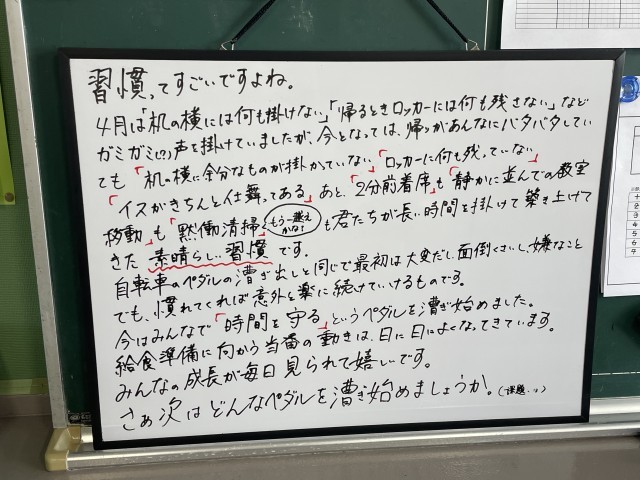 習慣ってすごいですよね。
4月は「机の横には何も掛けない」「帰るときロッカーには何も残さない」など
ガミガミ(?)声を掛けていましたが、今となっては、帰りがあんなにバタバタしてい
ても「机の横に余分なものが掛かっていない」「ロッカーに何も残っていない」
「イスがきちんと仕舞ってある」あと、「2分前着席」も「静かに並んでの教室
移動」も「黙働清掃」もう一越えかな?も君たちが長い時間を掛けて築き上げて
きた素晴らしい習慣です。
自転車のペダルの漕ぎ出しと同じで最初は大変だし、面倒くさいし、嫌なこと
でも、慣れてくれば意外と楽に続けていけるものです。
今はみんなで「時間を守る」というペダルを漕ぎ始めました。
給食準備に向かう当番の動きは、日に日によくなってきています。
みんなの成長が毎日見られて嬉しいです。
さぁ次はどんなペダルを漕ぎ始めましょうか。